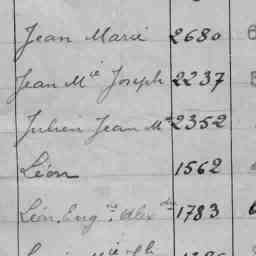 Jean Marie 2680
Jean Mie Joseph 2237
Julien Jean Mie 2352
Léon 1562
Léon, Eugne, Alexdre 1783